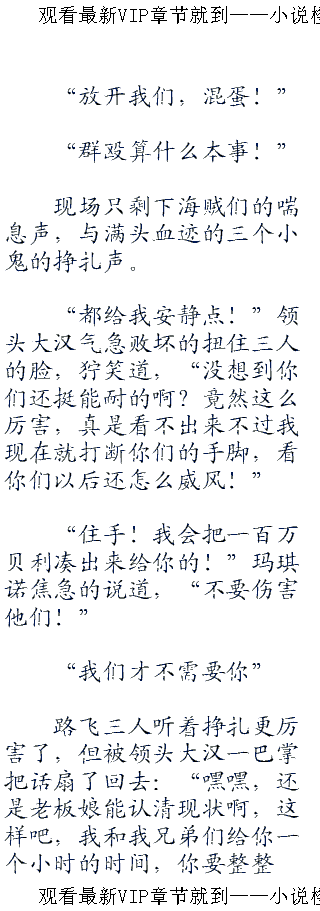 观看最新VIP章节就到——小说楼
“放开我们，混蛋！”
“群殴算什么本事！”
现场只剩下海贼们的喘
息声，与满头血迹的三个小
鬼的挣扎声。
“都给我安静点！”领
头大汉气急败坏的扭住三人
的脸，狞笑道，“没想到你
们还挺能耐的啊？竟然这么
厉害，真是看不出来不过我
现在就打断你们的手脚，看
你们以后还怎么威风！”
“住手！我会把一百万
贝利凑出来给你的！”玛琪
诺焦急的说道，“不要伤害
他们！”
“我们才不需要你”
路飞三人听着挣扎更厉
害了，但被领头大汉一巴掌
把话扇了回去：“嘿嘿，还
是老板娘能认清现状啊，这
样吧，我和我兄弟们给你一
个小时的时间，你要整整
观看最新VIP章节就到——小说楼